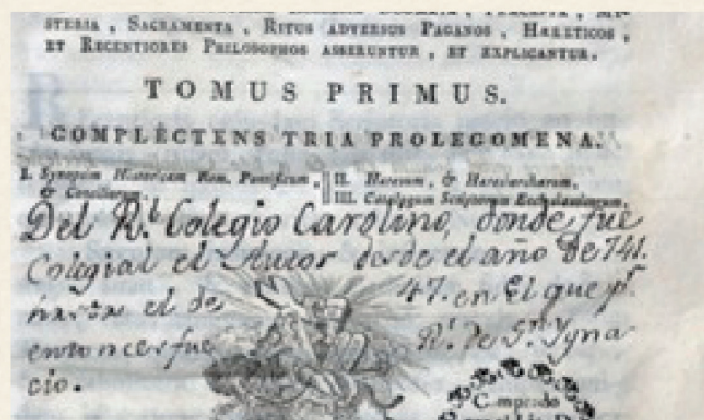 STERIA, SACRAMENTA, RITUS ADVERSUS PAGANOS, HÆRETICOS,
ET RECENTIORES PHILOSOPHOS ASSERUNTUR, ET EXPLICANTUR.
TOMUS PRIMUS.
COMPLECTENS TRIA PROLEGOMENA.
I. Synopsim Historicam Rom. Pontificum, II. Hæresum, & Hæresiarcharum,
& Conciliorum. III. Catalogum Scriptorum Ecclesiasticorum.
Del R.l Colegio Carolino, donde fue
Colegial el Autor desde el año de 741.
hasta el de 47. en el que pr.
entonces fue R.l de S.n Ygna
cio.